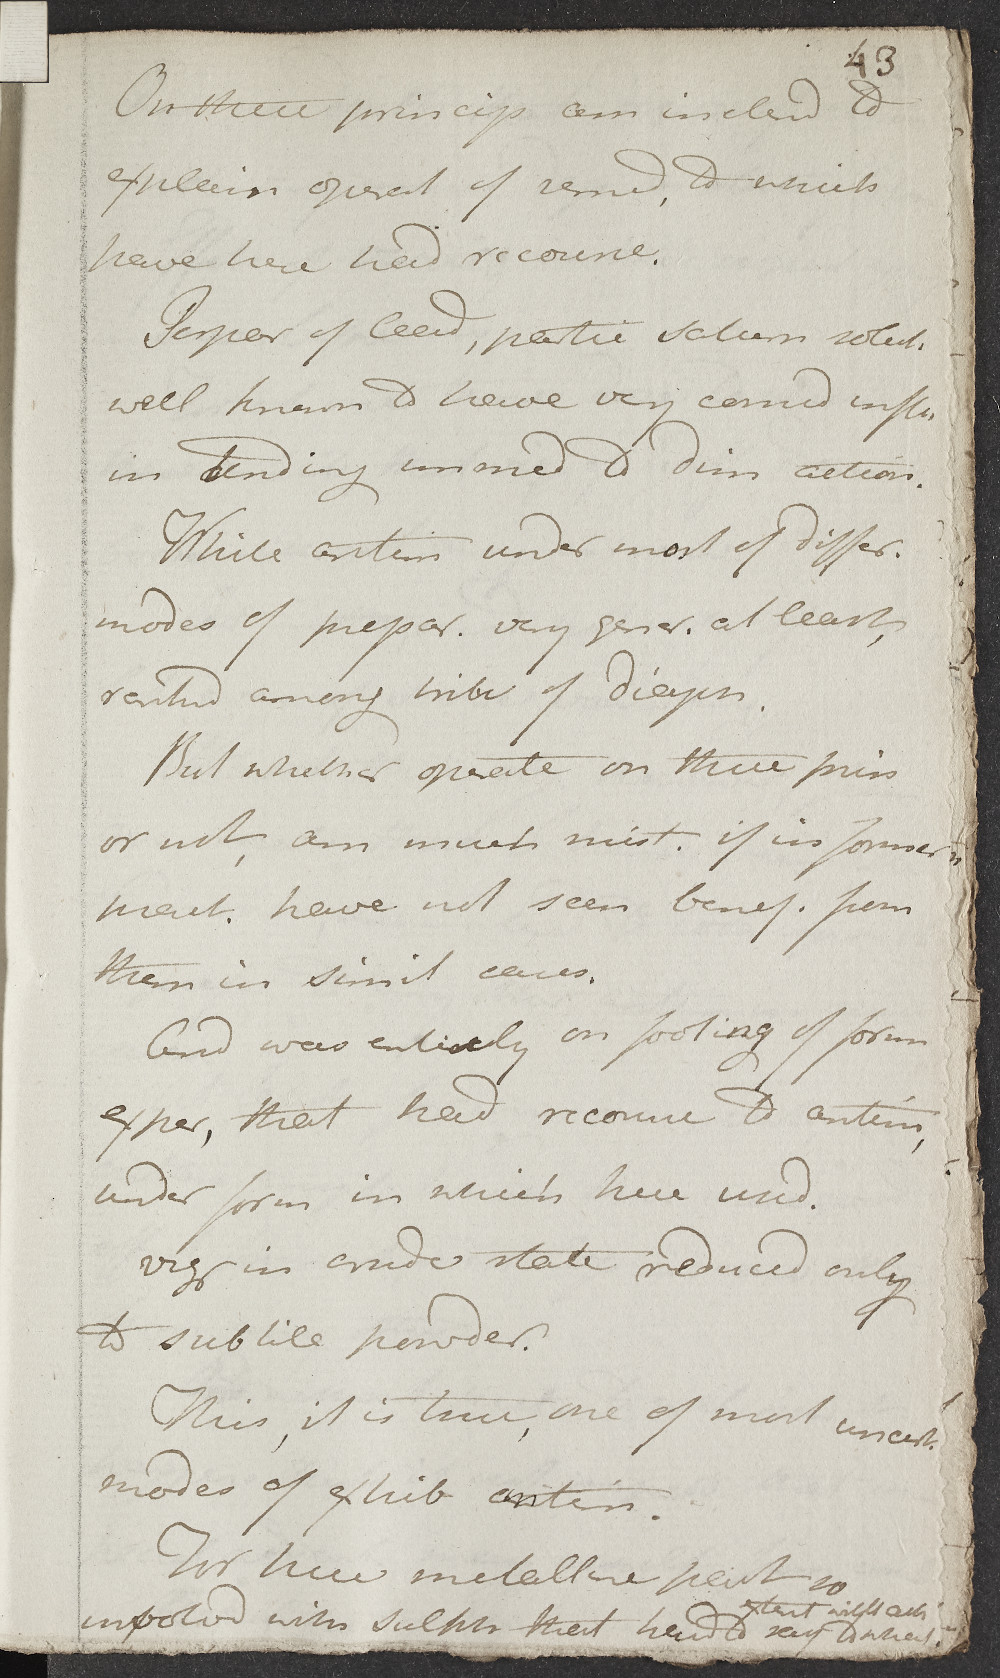 43
On these princip am inclend to
explain operat of remed, to which
have here had recourse.
Prepar of lead, partic Saturn solut.
well known to have very consid influ.
in tending immed to dimin action.
While antim under most of differ.
modes of prepar. very gener. at least,
rankd among tribe of diaph.
But whether operate on these prin
or not, am much mist. if in former
pract. have not seen benef. from
them in simil cases.
And was entirely on footing of form
exper, that had recourse to antim,
under form in which here used.
viz in crude state reduced only
to subtile powder.
This, it is true, one of most uncert.
modes of exhib antim.
For here metalline part so
involvd with sulph that hard to say to what
extent will act